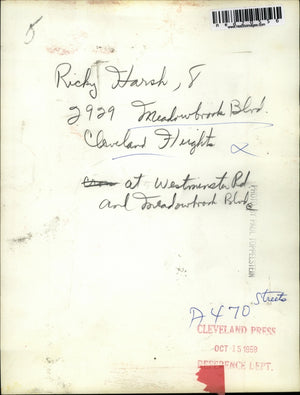 5
Ricky Harsh, 8
2929 Meadowbrook Blvd.
Cleveland Heights
at Westminster Rd
and Meadowbrook Blvd
Streets
A470
CLEVELAND PRESS
OCT 15 1959
REFERENCE DEPT.